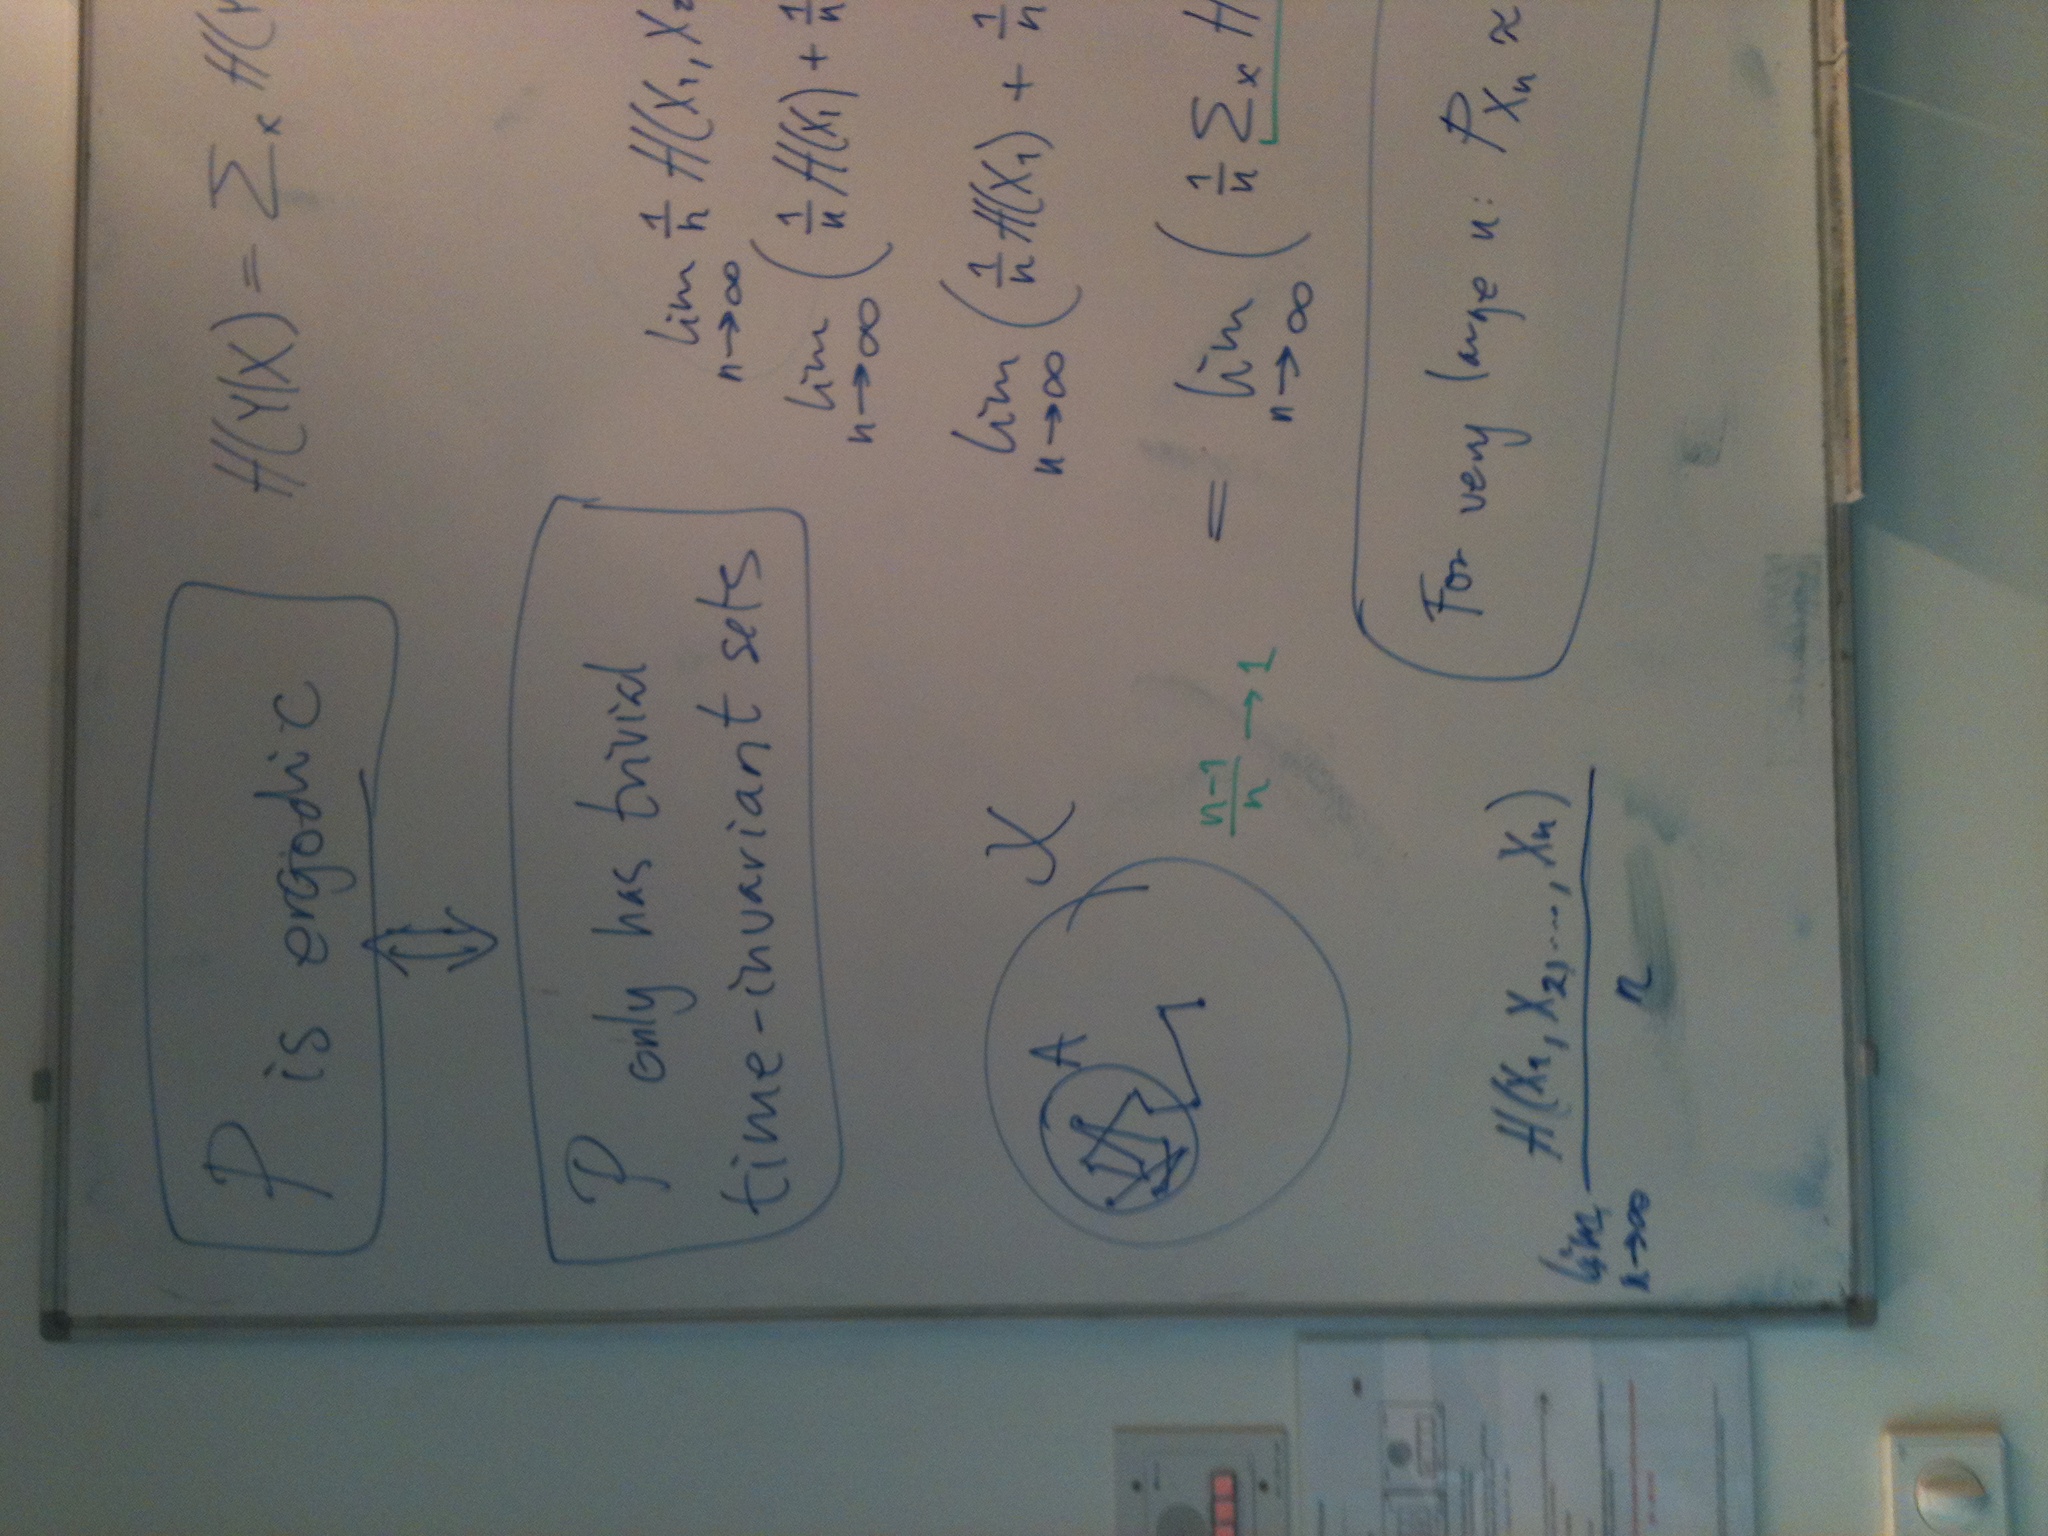 P is ergodic
P only has trivial
time-invariant sets
A
X
n-1/n → 1
lim n→∞ H(X1, X2,..., Xn) / n
H(Y|X) = Σx H(Y
lim n→∞ 1/n H(X1, X2
lim n→∞ (1/n H(X1) + 1/n
lim n→∞ (1/n H(X1) + 1/n
= lim n→∞ (1/n Σx H
For very large n: P Xn ≈